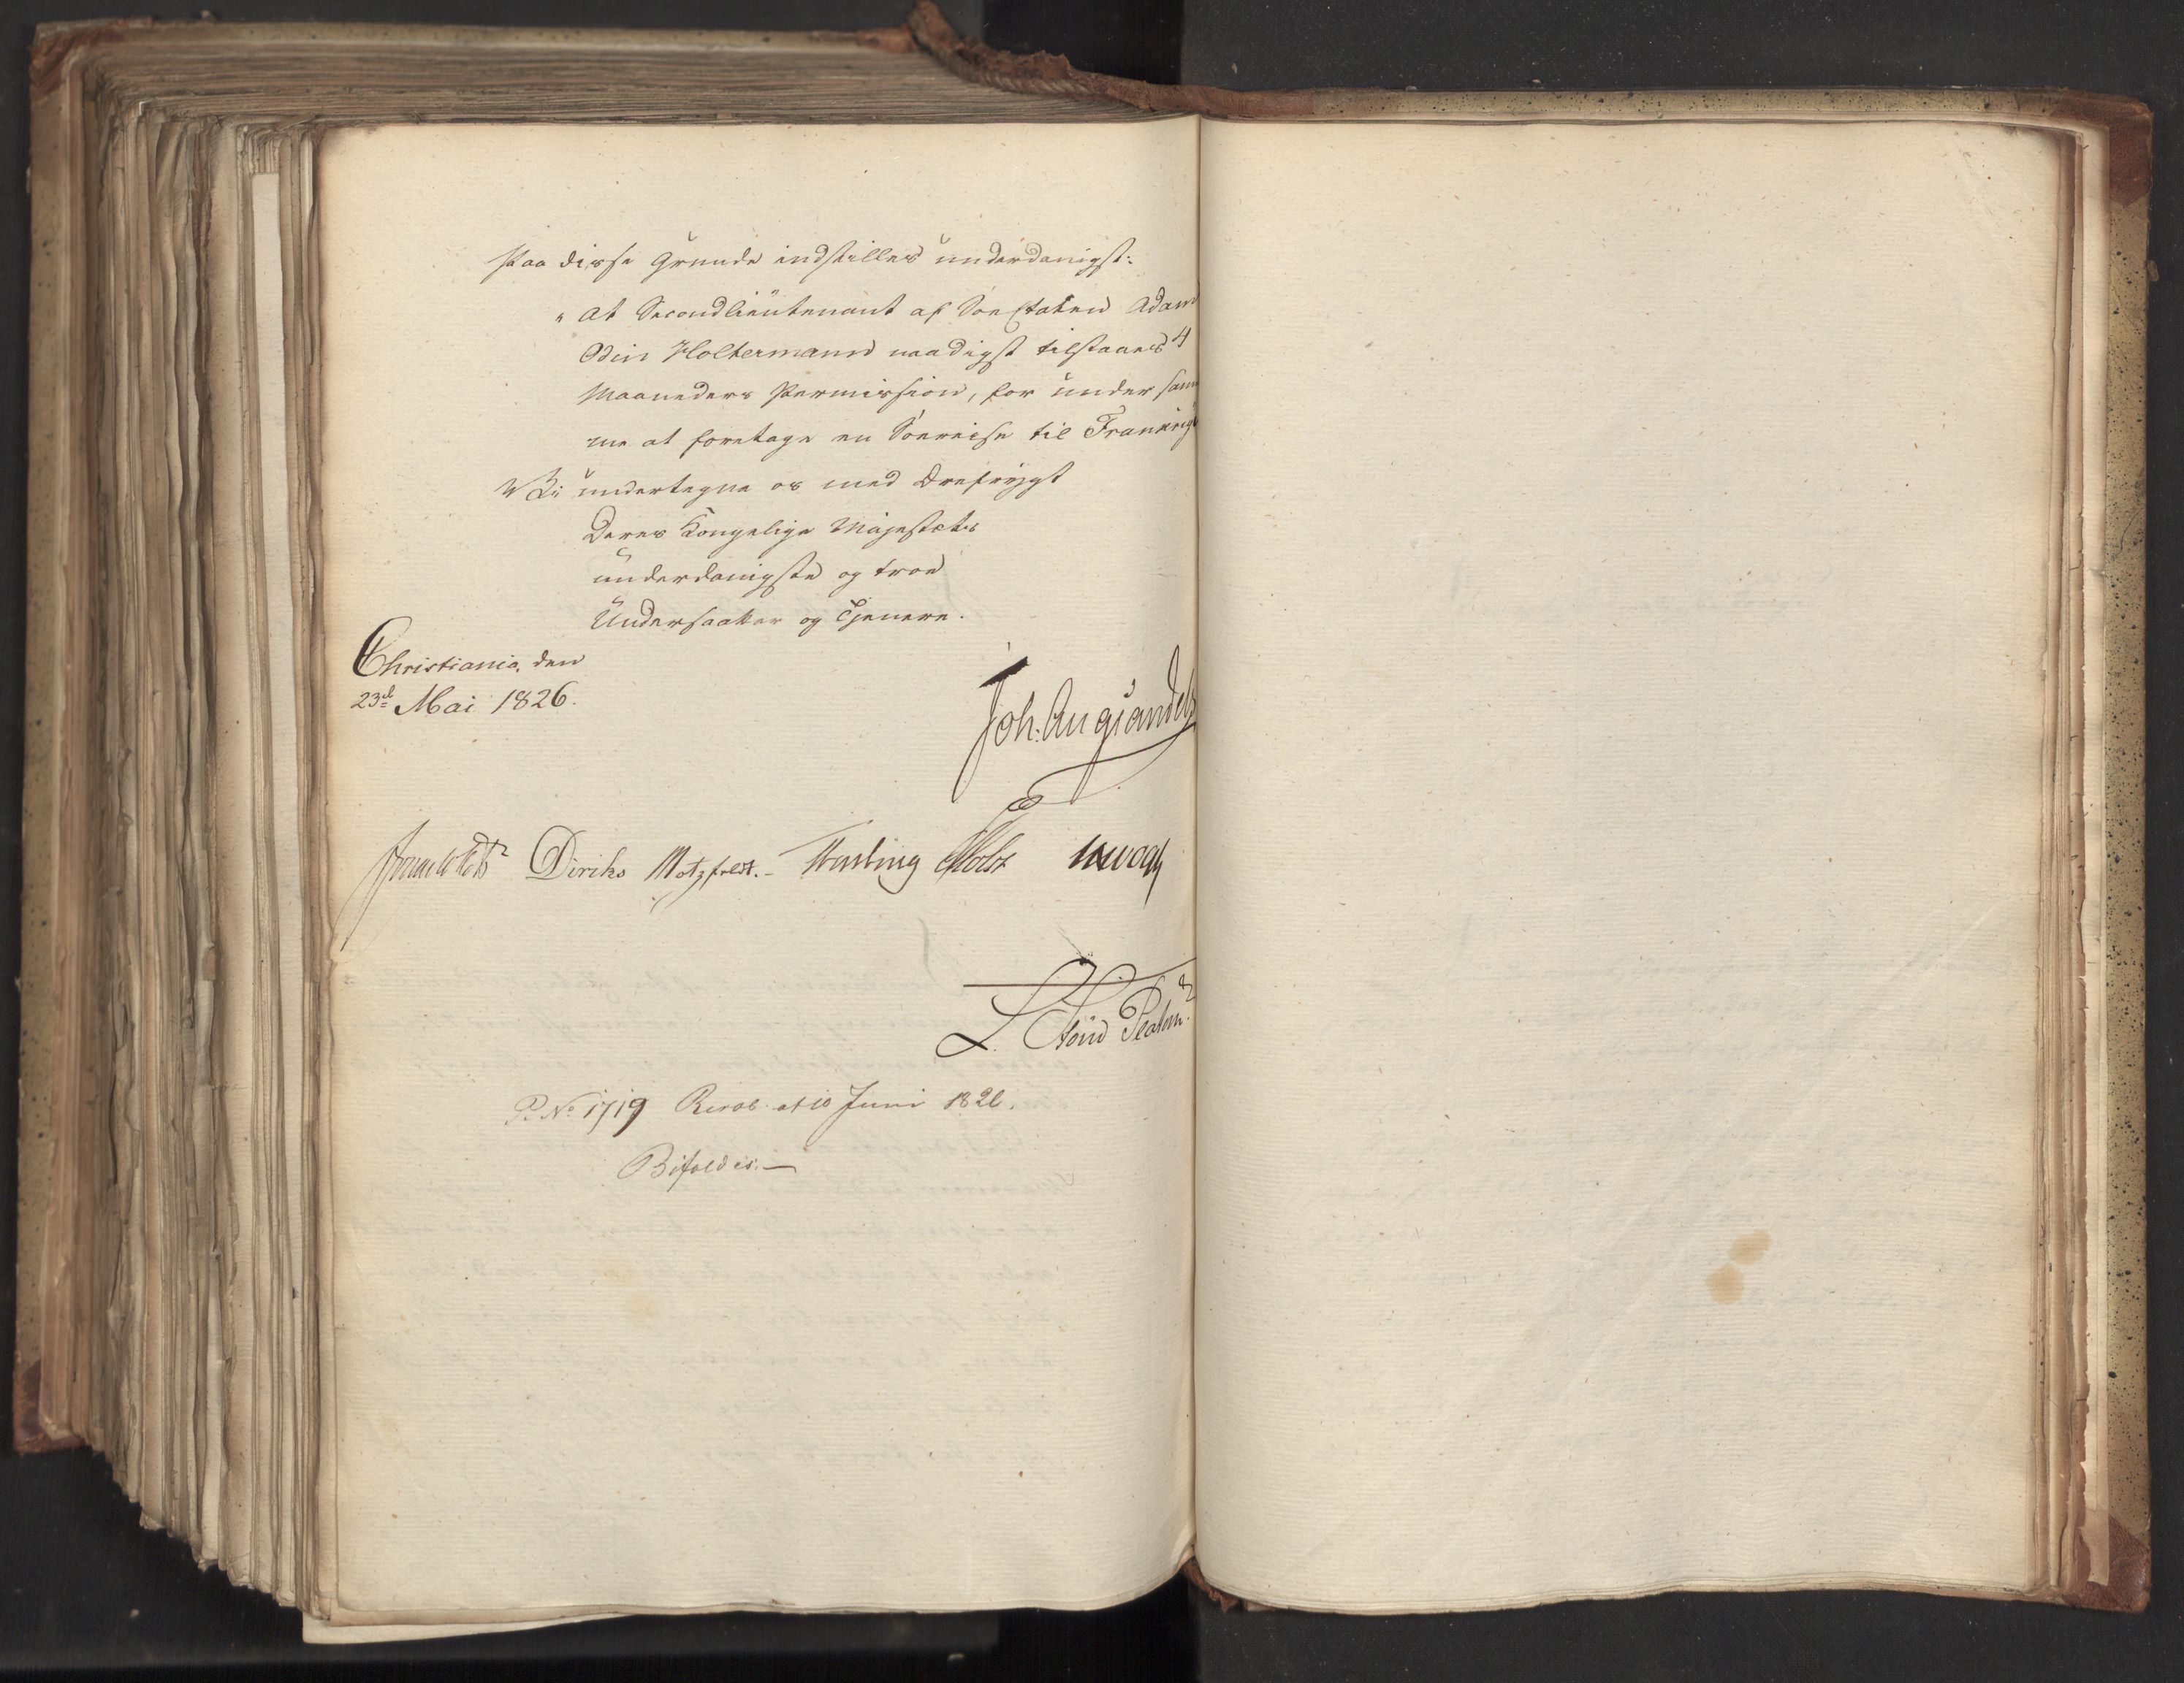 Paa disse Grunde indstilles underdanigst:
" At Secondlieutenant af Søe Etaten Adam
Odin Holtermann naadigst tilstaaes 4
Maaneders Permission, for under sam
me at foretage en Søereise til Frankrig
Vi undertegne os med Ærefrygt
Deres Kongelige Majestæts
underdanigste og troe
Undersaatter og Tjenere.
Christiania, den
23d Mai 1826.
Joh: Aug Sandels
Diriks Motzfeldt. Fasting Holst
L. Stoud Platou
P. No 1719 Resol. af 10 Juni 1826.
Bifaldes.—